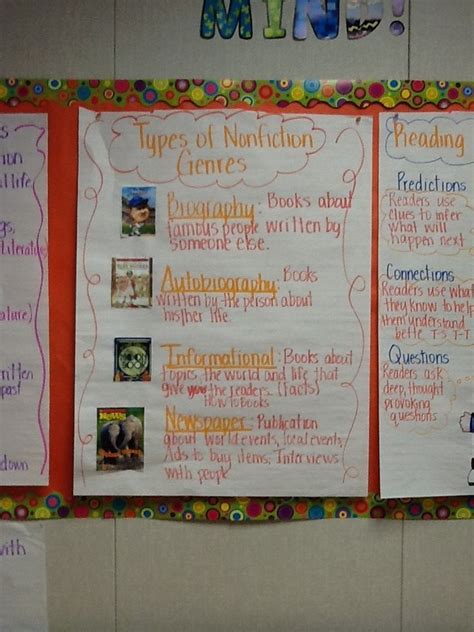 MIND!
Types of Nonfiction
Genres
Biography: Books about
famous people written by
someone else.
Autobiography: Books
written by the person about
his/her life.
Informational: Books about
topics the world and life that
give you the readers (facts)
HOW TO BOOKS
Newspaper: Publication
about world events, local events,
Ads to buy items, Interviews
with people
Reading
Predictions
Readers use
clues to infer
what will
happen next.
Connections
Readers use what
they know to help
them understand
bette T-S T-T
Questions
Readers ask
deep, thought
provoking
questions
life
Literature
ature)
written
past
down
with